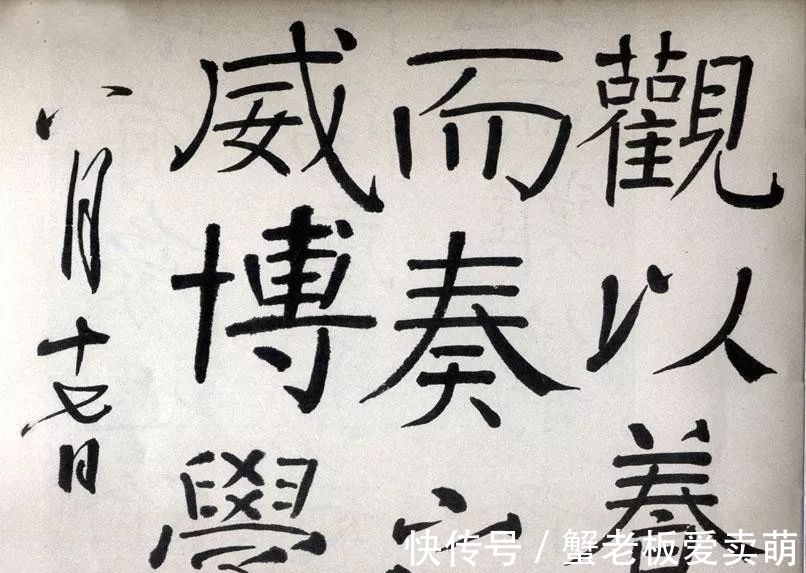 觀以養
而奏
威博學
八月十七日
快传号 / 蟹老板爱卖萌